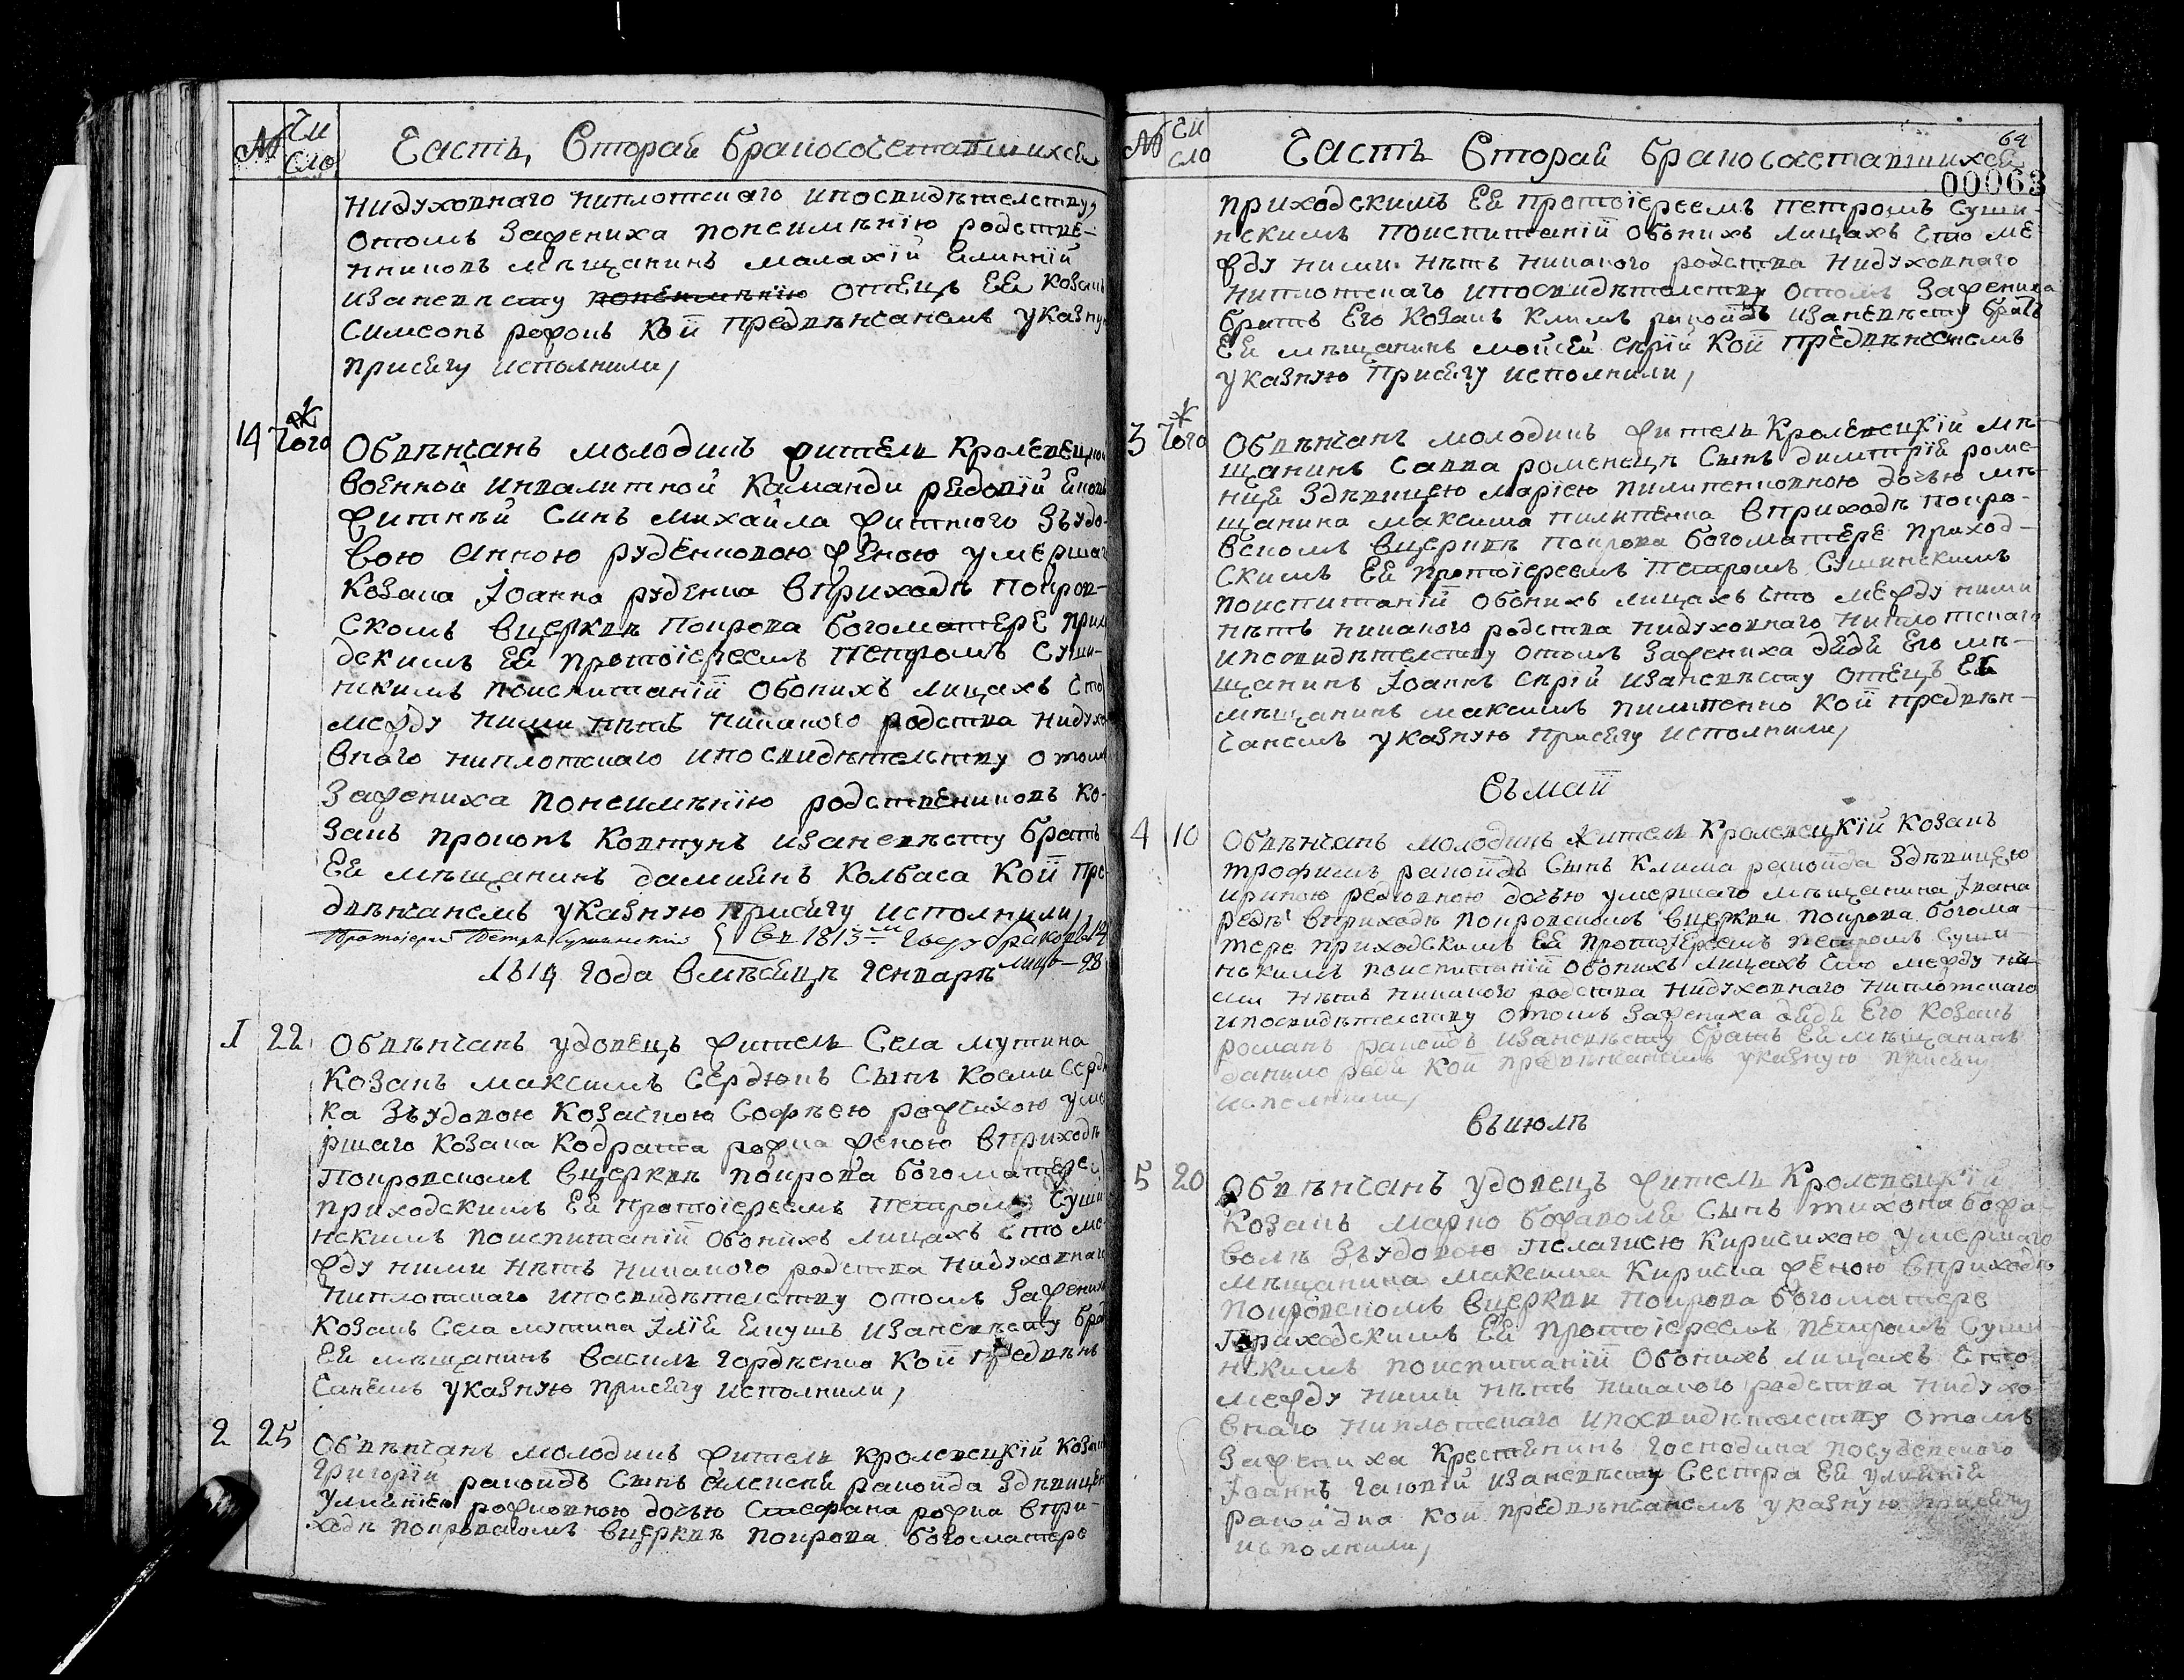 № Чи
сло
Часть, Вторая бракосочетавшихся
нидуховнаго ниплотскаго ипосвидѣтелству,
отомъ Зажениха понеимѣнію родстве-
нниковъ мѣщанинъ малахій
изаневѣсту понеимѣнію отецъ Ея козакъ
Симеонъ рожокъ Кои предвѣнчанемъ указную
присягу исполнили,
14 Того Обвѣнчанъ молодикъ житель Кролевецкой
Военной инвалитной Каманди рядовій
житній Синъ михайла житного Зъудо-
вою Анною руденковою женою умершаго
Козака Іоанна руденка Вприходѣ покров-
скомъ Вцерквѣ покрова богоматере прихо
дскимъ Ея протоіереемъ Петромъ Суши-
нскимъ поиспитаніи обоихъ лицахъ что
между ними нѣтъ никакого родства нидухо
внаго ниплотскаго ипосвидѣтелству отомъ
Зажениха понеимѣнію родствениковъ ко-
закъ прокопъ Ковтунъ изаневѣсту братъ
Ея мѣщанинъ дамиянъ Колбаса Кои пре
двѣнчанемъ указную присягу исполнили,
Протоіерей Петръ Сушинскій Въ 1813-м году браковъ 14
лицъ—28
1814 года Вмѣсяцѣ Генварѣ
1 22 Обвѣнчанъ удовецъ житель Села мутина
Козакъ максимъ Сердюкъ Сынъ Косми Сердю
ка Зъудовою Козачкою Софѣею рожчихою уме
ршаго Козака Кодрата рожка женою Вприходѣ
Покровскомъ Вцерквѣ покрова богоматере
приходскимъ Ея протоіереемъ Петромъ Суши
нскимъ поиспитаніи обоихъ лицахъ что ме-
жду ними нѣтъ никакого родства нидуховнаго
ниплотскаго ипосвидѣтелству отомъ Зажениха
Козакъ Села мутина Ілія изаневѣсту братъ
Ея мѣщанинъ Василь гордѣенко Кои предвѣн
чанемъ указную присягу исполнили,
2 25 Обвѣнчанъ молодикъ житель кролевецкій Козакъ
Григорій ракоидъ Сынъ алексѣя ракоида Здѣвицею
Улияніею рожковною дочью Стефана рожка Впри-
ходѣ покровскомъ Вцерквѣ покрова богоматере
№ Чи
сло
Часть Вторая бракосочетавшихся
64
00063
приходскимъ Ея протоіереемъ Петромъ Суши-
нскимъ поиспитаніи обоихъ лицахъ что ме
жду ними нѣтъ никакого родства нидуховнаго
ниплотскаго ипосвидѣтелству отомъ Зажениха
братъ Его Козакъ Климъ ракоидъ изаневѣсту братъ
Ея мѣщанинъ мойсей Сѣрій Кои предвѣнчанемъ
указную присягу исполнили,
3 Того Обвѣнчанъ молодикъ житель Кролевецкій мѣ-
щанинъ Савва роменецъ Сынъ димитрія роме-
нця Здѣвицею маріею пилипенковною дочью мѣ-
щанина максима пилипенка Вприходѣ покро-
вскомъ Вцерквѣ покрова богоматере приход-
скимъ Ея протоіереемъ Петромъ Сушинскимъ
поиспитаніи обоихъ лицахъ что между ними
нѣтъ никакого родства нидуховнаго ниплотскаго
ипосвидѣтелству отомъ Зажениха дядя Его мѣ-
щанинъ Іоаннъ Сѣрій изаневѣсту отецъ Ея
мѣщанинъ максимъ пилипенко Кои предвѣн-
чанемъ указную присягу исполнили,
Въмаи
4 10 Обвѣнчанъ молодикъ житель Кролевецкій Козакъ
трофимъ ракоидъ Сынъ Клима ракоида Здѣвицею
ириною редковною дочью умершаго мѣщанина Ивана
редкѣ Вприходѣ покровскомъ Вцеркви покрова богома-
тере приходскимъ Ея протоіереемъ петромъ Суши-
нскимъ поиспитаніи обоихъ лицахъ что между ни
ми нѣтъ никакого родства нидуховнаго ниплотскаго
ипосвидѣтелству отомъ Зажениха дядя Его Козакъ
романъ ракоидъ изаневѣсту братъ Ея мѣщанинъ
данило Кои предвѣнчанемъ указную присягу
исполнили,
Въиюлѣ
5 20 Обвѣнчанъ удовецъ житель Кролевецкій
Козакъ марко Сынъ тихона
Зъудовою Пелагиею Кирисихою умершаго
мѣщанина максима Кириска женою Вприходѣ
покровскомъ Вцеркви покрова богоматере
Приходскимъ Ея протоіереемъ петромъ Суши-
нскимъ поиспитаніи обоихъ лицахъ что
между ними нѣтъ никакого родства нидухо
внаго ниплотскаго ипосвидѣтелству отомъ
Зажениха крестянинъ господина
Іоаннъ изаневѣсту Сестра Ея улиянія
ракоидка Кои предвѣнчанемъ указную присягу
исполнили,